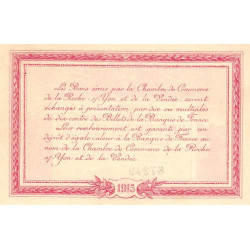 Les Bons émis par la Chambre de Commerce
de la Roche-s/-Yon et de la Vendée, seront
échangés à présentation par dix ou multiples
de dix contre des Billets de la Banque de France.
Leur remboursement est garanti par un
dépôt d'égale valeur à la Banque de France au
nom de la Chambre de Commerce de la Roche
s/-Yon et de la Vendée.
1915